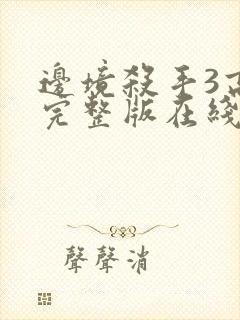 邊境殺手3高
完整版在綫
聲聲消